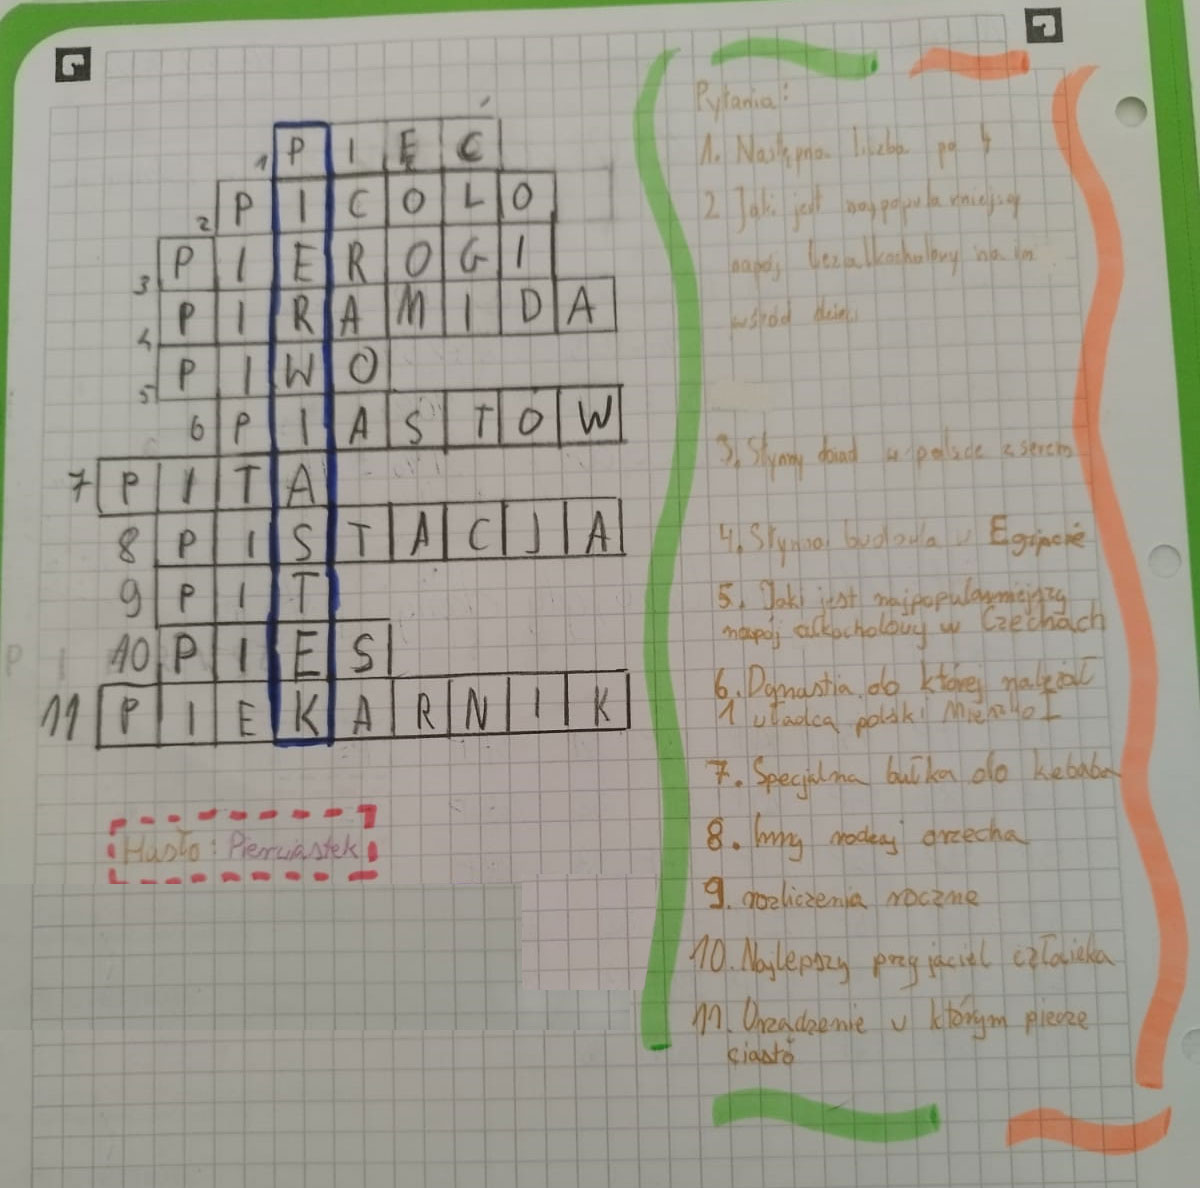 1 P I Ę Ć
2 P I C O L O
3 P I E R O G I
4 P I R A M I D A
5 P I W O
6 P I A S T Ó W
7 P I T A
8 P I S T A C J A
9 P I T
10 P I E S
11 P I E K A R N I K
Hasło: Pierwiastek
Pytania:
1. Następna liczba po 4
2 Jaki jest najpopularniejszy
napój bezalkocholowy na im
wśród dzieci
3. Słynny obiad w polsce z serem
4. Słynna budowla w Egipcie
5. Jaki jest najpopularniejszy
napój alkocholowy w Czechach
6. Dynastia do której należał
1 władca polski Mieszko I
7. Specjalna bułka do kebaba
8. Inny rodzaj orzecha
9. rozliczenia roczne
10. Najlepszy przyjaciel człowieka
11. Urządzenie w którym piecze
ciasto